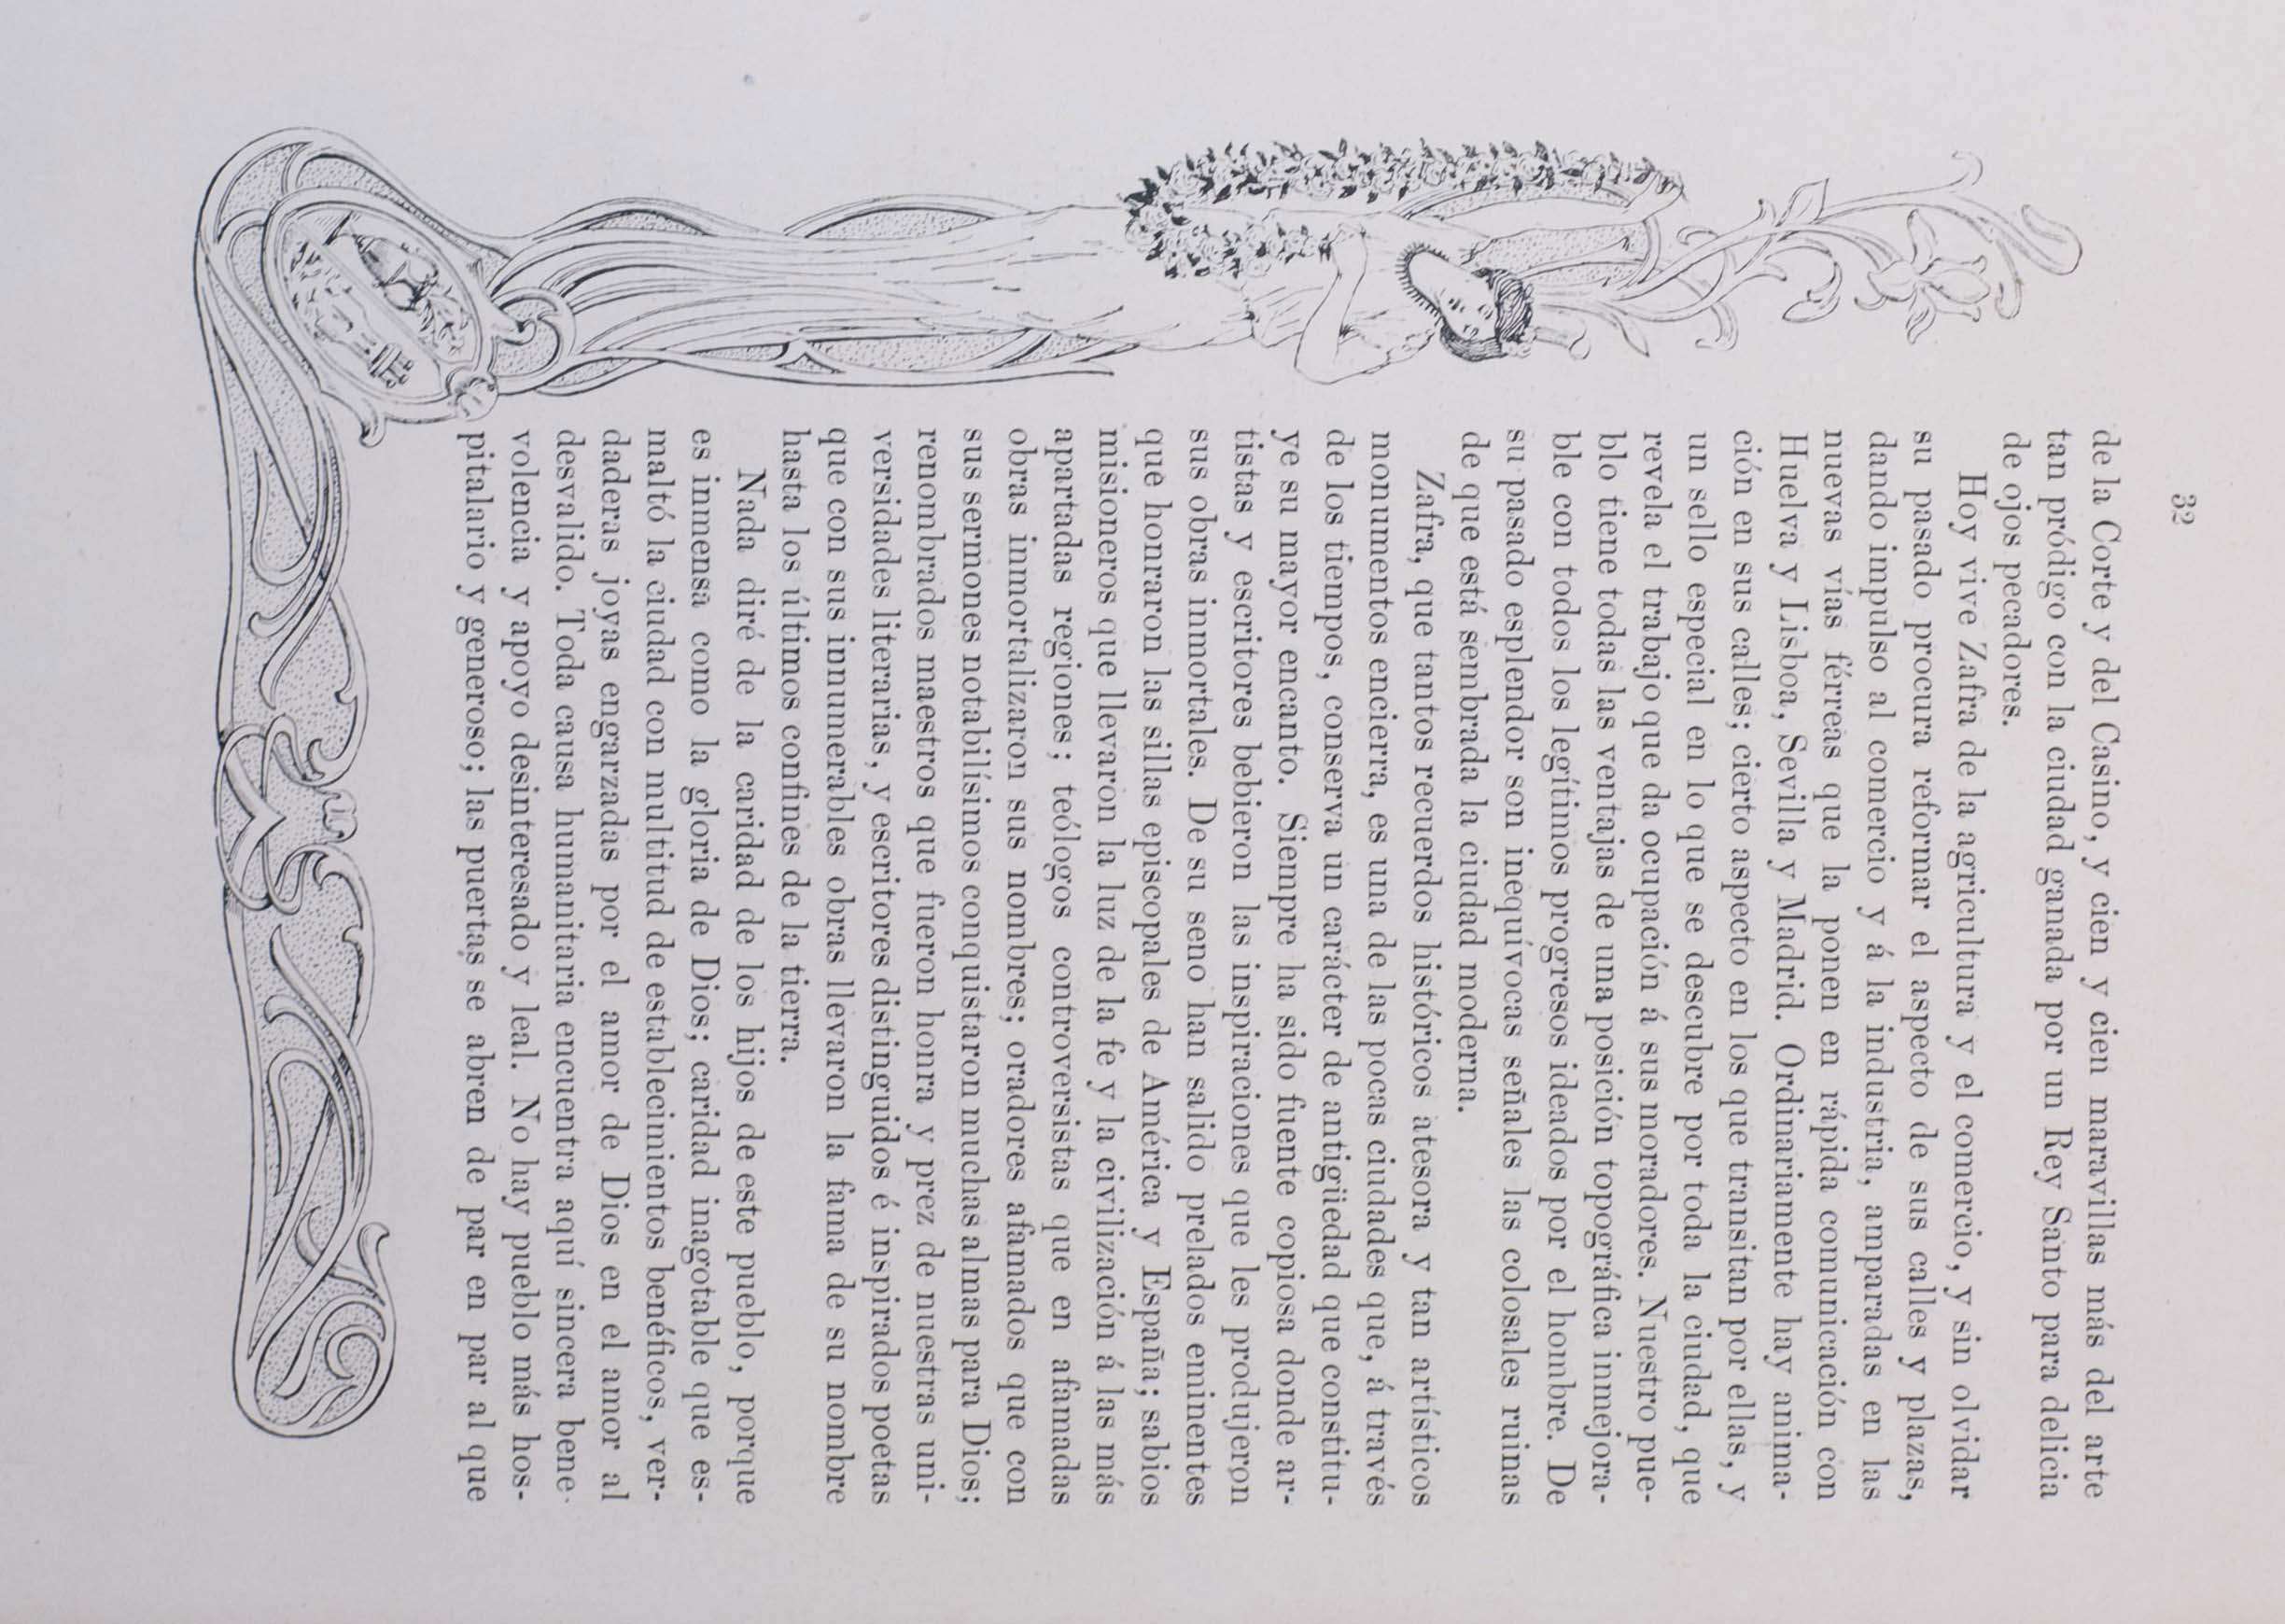 32
de la Corte y del Casino, y cien y cien maravillas más del arte
tan pródigo con la ciudad ganada por un Rey Santo para delicia
de ojos pecadores.
Hoy vive Zafra de la agricultura y el comercio, y sin olvidar
su pasado procura reformar el aspecto de sus calles y plazas,
dando impulso al comercio y á la industria, amparadas en las
nuevas vías férreas que la ponen en rápida comunicación con
Huelva y Lisboa, Sevilla y Madrid. Ordinariamente hay anima-
ción en sus calles; cierto aspecto en los que transitan por ellas, y
un sello especial en lo que se descubre por toda la ciudad, que
revela el trabajo que da ocupación á sus moradores. Nuestro pue-
blo tiene todas las ventajas de una posición topográfica inmejora-
ble con todos los legítimos progresos ideados por el hombre. De
su pasado esplendor son inequívocas señales las colosales ruinas
de que está sembrada la ciudad moderna.
Zafra, que tantos recuerdos históricos atesora y tan artísticos
monumentos encierra, es una de las pocas ciudades que, á través
de los tiempos, conserva un carácter de antigüedad que constitu-
ye su mayor encanto. Siempre ha sido fuente copiosa donde ar-
tistas y escritores bebieron las inspiraciones que les produjeron
sus obras inmortales. De su seno han salido prelados eminentes
que honraron las sillas episcopales de América y España; sabios
misioneros que llevaron la luz de la fe y la civilización á las más
apartadas regiones; teólogos controversistas que en afamadas
obras inmortalizaron sus nombres; oradores afamados que con
sus sermones notabilísimos conquistaron muchas almas para Dios;
renombrados maestros que fueron honra y prez de nuestras uni-
versidades literarias, y escritores distinguidos é inspirados poetas
que con sus innumerables obras llevaron la fama de su nombre
hasta los últimos confines de la tierra.
Nada diré de la caridad de los hijos de este pueblo, porque
es inmensa como la gloria de Dios; caridad inagotable que es-
maltó la ciudad con multitud de establecimientos benéficos, ver-
daderas joyas engarzadas por el amor de Dios en el amor al
desvalido. Toda causa humanitaria encuentra aquí sincera bene-
volencia y apoyo desinteresado y leal. No hay pueblo más hos-
pitalario y generoso; las puertas se abren de par en par al que